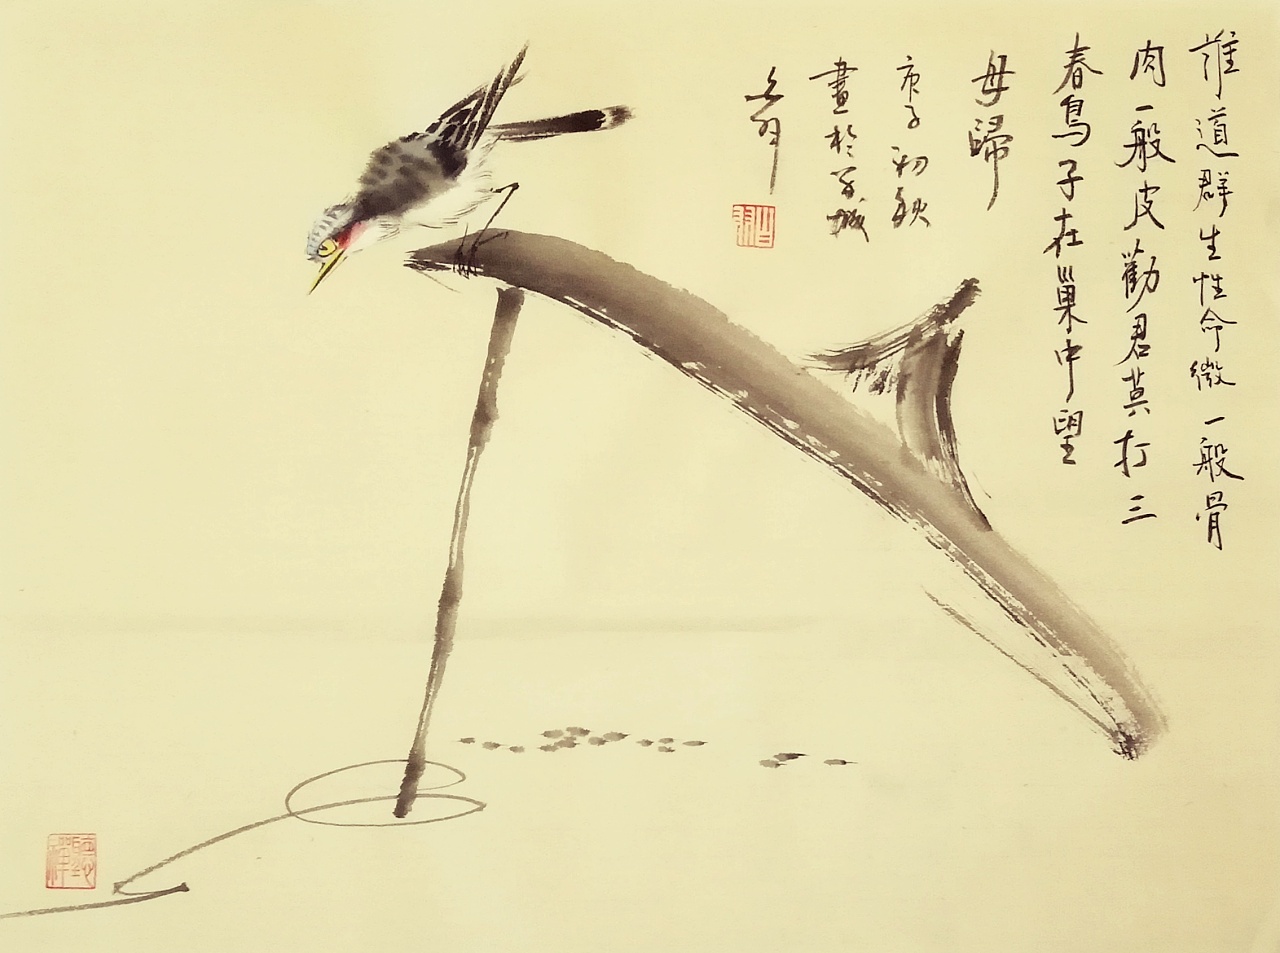 誰道群生性命微一般骨
肉一般皮勸君莫打三
春鳥子在巢中望
母歸
庚子初秋
畫於城
聽禪